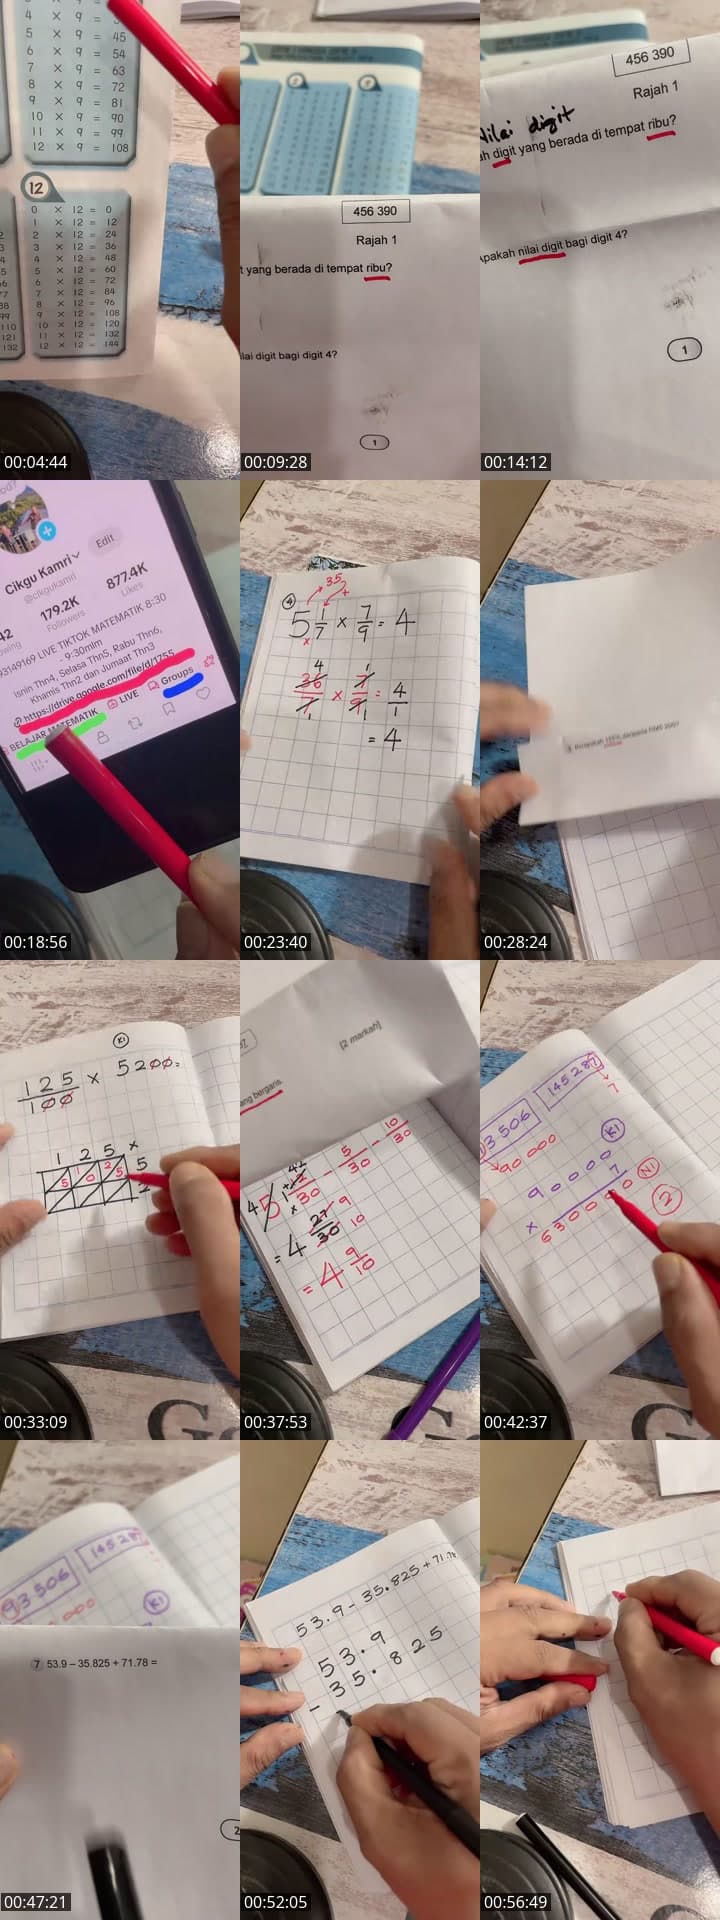 4 × 9 =
5 × 9 = 45
6 × 9 = 54
7 × 9 = 63
8 × 9 = 72
9 × 9 = 81
10 × 9 = 90
11 × 9 = 99
12 × 9 = 108
12
0 × 12 = 0
1 × 12 = 12
2 × 12 = 24
3 × 12 = 36
4 × 12 = 48
5 × 12 = 60
6 × 12 = 72
7 × 12 = 84
8 × 12 = 96
9 × 12 = 108
10 × 12 = 120
11 × 12 = 132
12 × 12 = 144
110
121
132
00:04:44
456 390
Rajah 1
t yang berada di tempat ribu?
lai digit bagi digit 4?
1
00:09:28
456 390
Rajah 1
Nilai digit
ah digit yang berada di tempat ribu?
Apakah nilai digit bagi digit 4?
1
00:14:12
Edit
Cikgu Kamri
@cikgukamri
42 179.2K 877.4K
owing Followers Likes
93149169 LIVE TIKTOK MATEMATIK 8:30
- 9:30mlm
Isnin Thn4, Selasa Thn5, Rabu Thn6,
Khamis Thn2 dan Jumaat Thn3
https://drive.google.com/file/d/1755
BELAJAR MATEMATIK LIVE Groups
00:18:56
35
4
+
5 1/7 × 7/9 = 4
×
4 1
36/7 × 7/9 = 4/1
1 1
= 4
00:23:40
00:28:24
K1
125/100 × 5200 =
1 2 5 ×
5 1 0 2 5 5
2
00:33:09
[2 markah]
ang bergaris.
5/30 - 10/30
= 4 27/30 9 10
= 4 9/10
00:37:53
93 506 145 287
90 000 7
K1
9 0 0 0 0
× 7
6 3 0 0 0 0 N1
2
00:42:37
93 506 145 287
K1
7 53.9 – 35.825 + 71.78 =
2
00:47:21
53.9 - 35.825 + 71.78
5 3 . 9
- 3 5 . 8 2 5
00:52:05
00:56:49